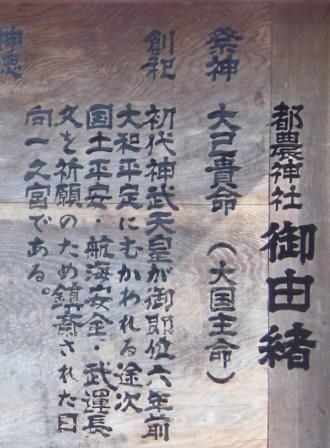 都農神社 御由緒
祭神 大己貴命(大国主命)
創祀 初代神武天皇が御即位六年前
大和平定にむかわれる途次
国土平安・航海安全・武運長
久を祈願のため鎮斎された日
向一久宮である。
神恵